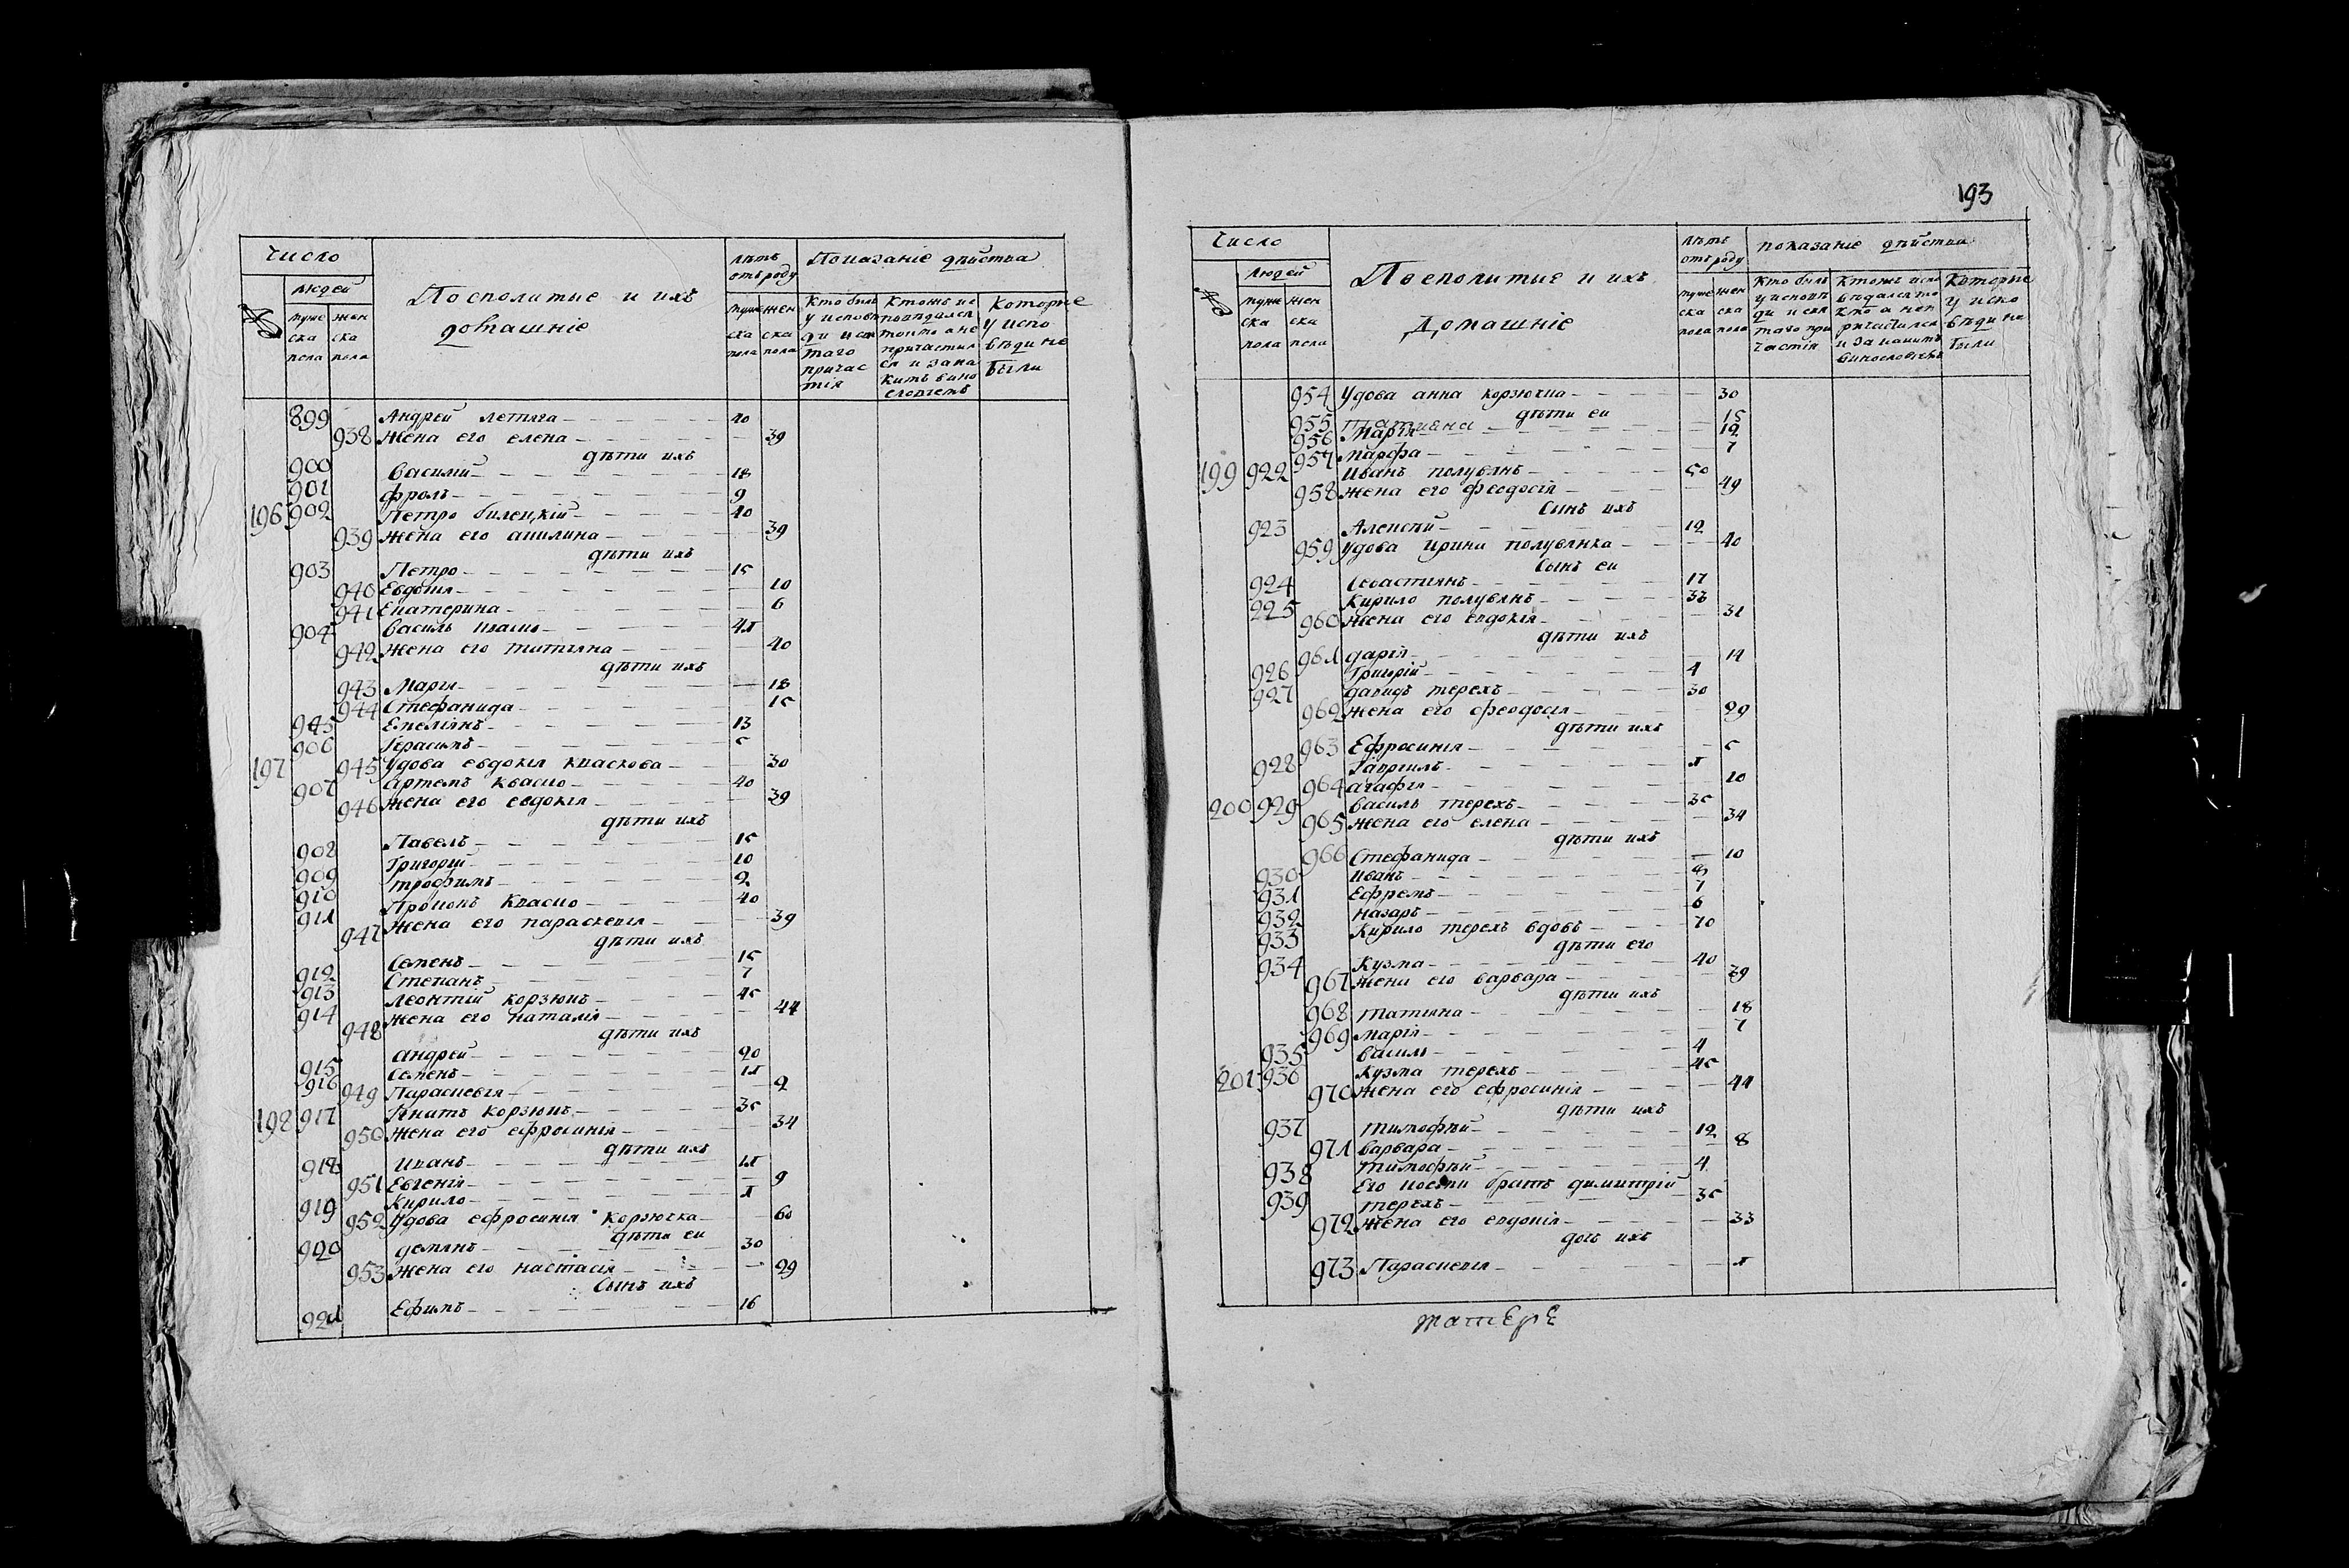 Число
людей
муже
ска
пола
жен
ска
пола
Посполитые и ихъ
домашніе
лѣтъ
отъ роду
муже
ска
пола
жен
ска
пола
Показаніе дѣйства
Кто былъ
у исповѣ
ди и свя
таго
причас
тія
Ктожъ ис
повѣдался
токмо а не
причастил
ся и зака
кимъ вино
словіемъ
Которые
у испо
вѣди не
были
899 Андрей летяга 40
938 Жена его елена 39
дѣти ихъ
900 Василій 18
901 фролъ 9
196 902 Петро билецкій 40
939 Жена его акилина 39
дѣти ихъ
903 Петро 15
940 Евдокія 10
941 Екатерина 6
904 Василь 41
942 Жена его татияна 40
дѣти ихъ
943 Марія 18
944 Стефанида 15
945 Емеліянъ 13
906 Герасимъ 5
197 945 Удова евдокія кваскова 30
907 артемъ Кваско 40
946 Жена его евдокія 39
дѣти ихъ
908 Павелъ 15
909 Григорій 10
910 трофимъ 2
911 Прокопъ Кваско 40
947 Жена его параскевія 39
дѣти ихъ
912 Семенъ 15
913 Степанъ 7
914 леонтій корзюкъ 45
948 Жена его наталія 44
дѣти ихъ
915 андрей 20
916 Семенъ 11
949 Параскевія 2
198 917 Игнатъ корзюкъ 35
950 Жена его ефросинія 34
дѣти ихъ
918 Иванъ 11
951 Евгенія 9
919 Кирило 1
952 Удова ефросинія Корзючка 60
дѣти еи
920 демянъ 30
953 Жена его настасія 29
Сынъ ихъ
921 Ефимъ 16
193
Число
людей
муже
ска
пола
жен
ска
пола
Посполитые и ихъ
Домашніе
лѣтъ
отъ роду
муже
ска
пола
жен
ска
пола
показаніе дѣйства
Кто былъ
у исповѣ
ди и свя
таго при
частія
Ктожъ испо
вѣдался то
кмо а неп
ричастился
и за какимъ
винословіемъ
Которые
у испо
вѣди не
были
954 Удова анна корзючка 30
дѣти еи
955 Татияна 15
956 Марія 12
957 марфа 7
199 922 Иванъ полуянъ 50
958 жена его феодосія 49
Сынъ ихъ
923 Алексѣй 12
959 Удова ирина полуянка 40
Сынъ еи
924 Севастиянъ 17
925 Кирило полуянъ 33
960 Жена его евдокія 31
дѣти ихъ
961 дарія 14
926 Григорій 4
927 давидъ терехъ 30
962 Жена его феодосія 29
дѣти ихъ
963 Ефросинія 5
928 Гавріилъ 1
964 агафія 10
200 929 Василь терехъ 35
965 Жена его елена 34
дѣти ихъ
966 Стефанида 10
930 иванъ 8
931 Ефремъ 7
932 назаръ 6
933 Кирило терехъ вдовъ 70
дѣти его
934 Кузма 40
967 Жена его варвара 39
дѣти ихъ
968 татияна 18
969 марія 7
935 Василь 4
201 936 Кузма терехъ 45
970 Жена его ефросинія 44
дѣти ихъ
937 тимофѣй 12
971 варвара 8
938 тимофѣй 4
Его косми братъ димитрій
939 терехъ 35
972 Жена его евдокія 33
дочъ ихъ
973 Параскевія 1
матере